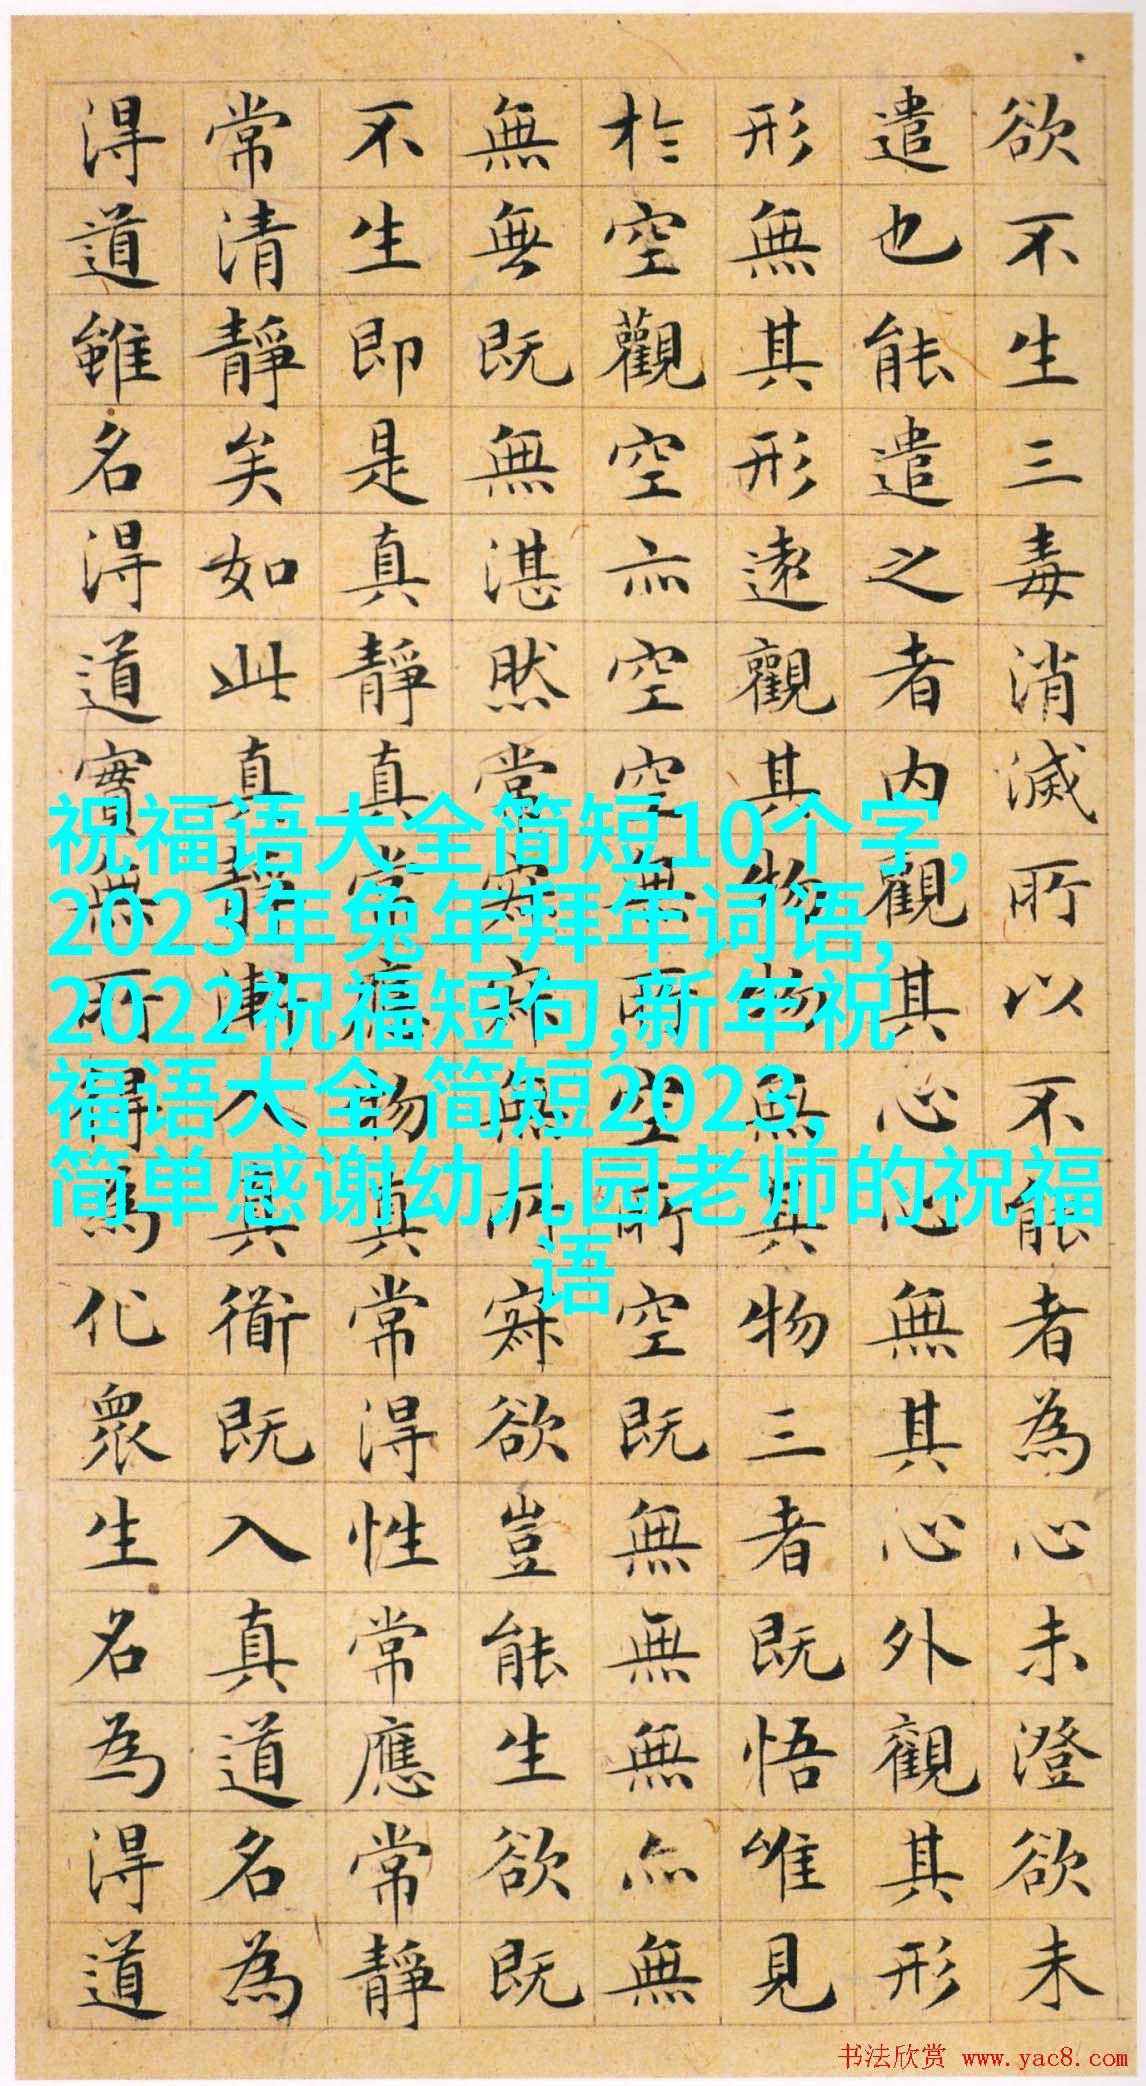 欲不生三毒消滅所以不能者為心未澄欲未
遣也能遣之者内觀其心心無其心外觀其形
形無其形遠觀其物物無其物三者既悟唯見
於空觀空亦空空無所空所空既無無無亦無
無無既無湛然常寂寂無所寂欲豈能生欲既
不生即是真靜真常應物真常得性常應常靜
常清靜矣如此真靜漸入真衜既入真道名為
得道雖名得道實無所得為化眾生名為得道
祝福语大全简短10个字,
2023年兔年拜年词语,
2022祝福短句,新年祝
福语大全 简短2023,
简单感谢幼儿园老师的祝福
语
书法欣赏 www.yac8.com